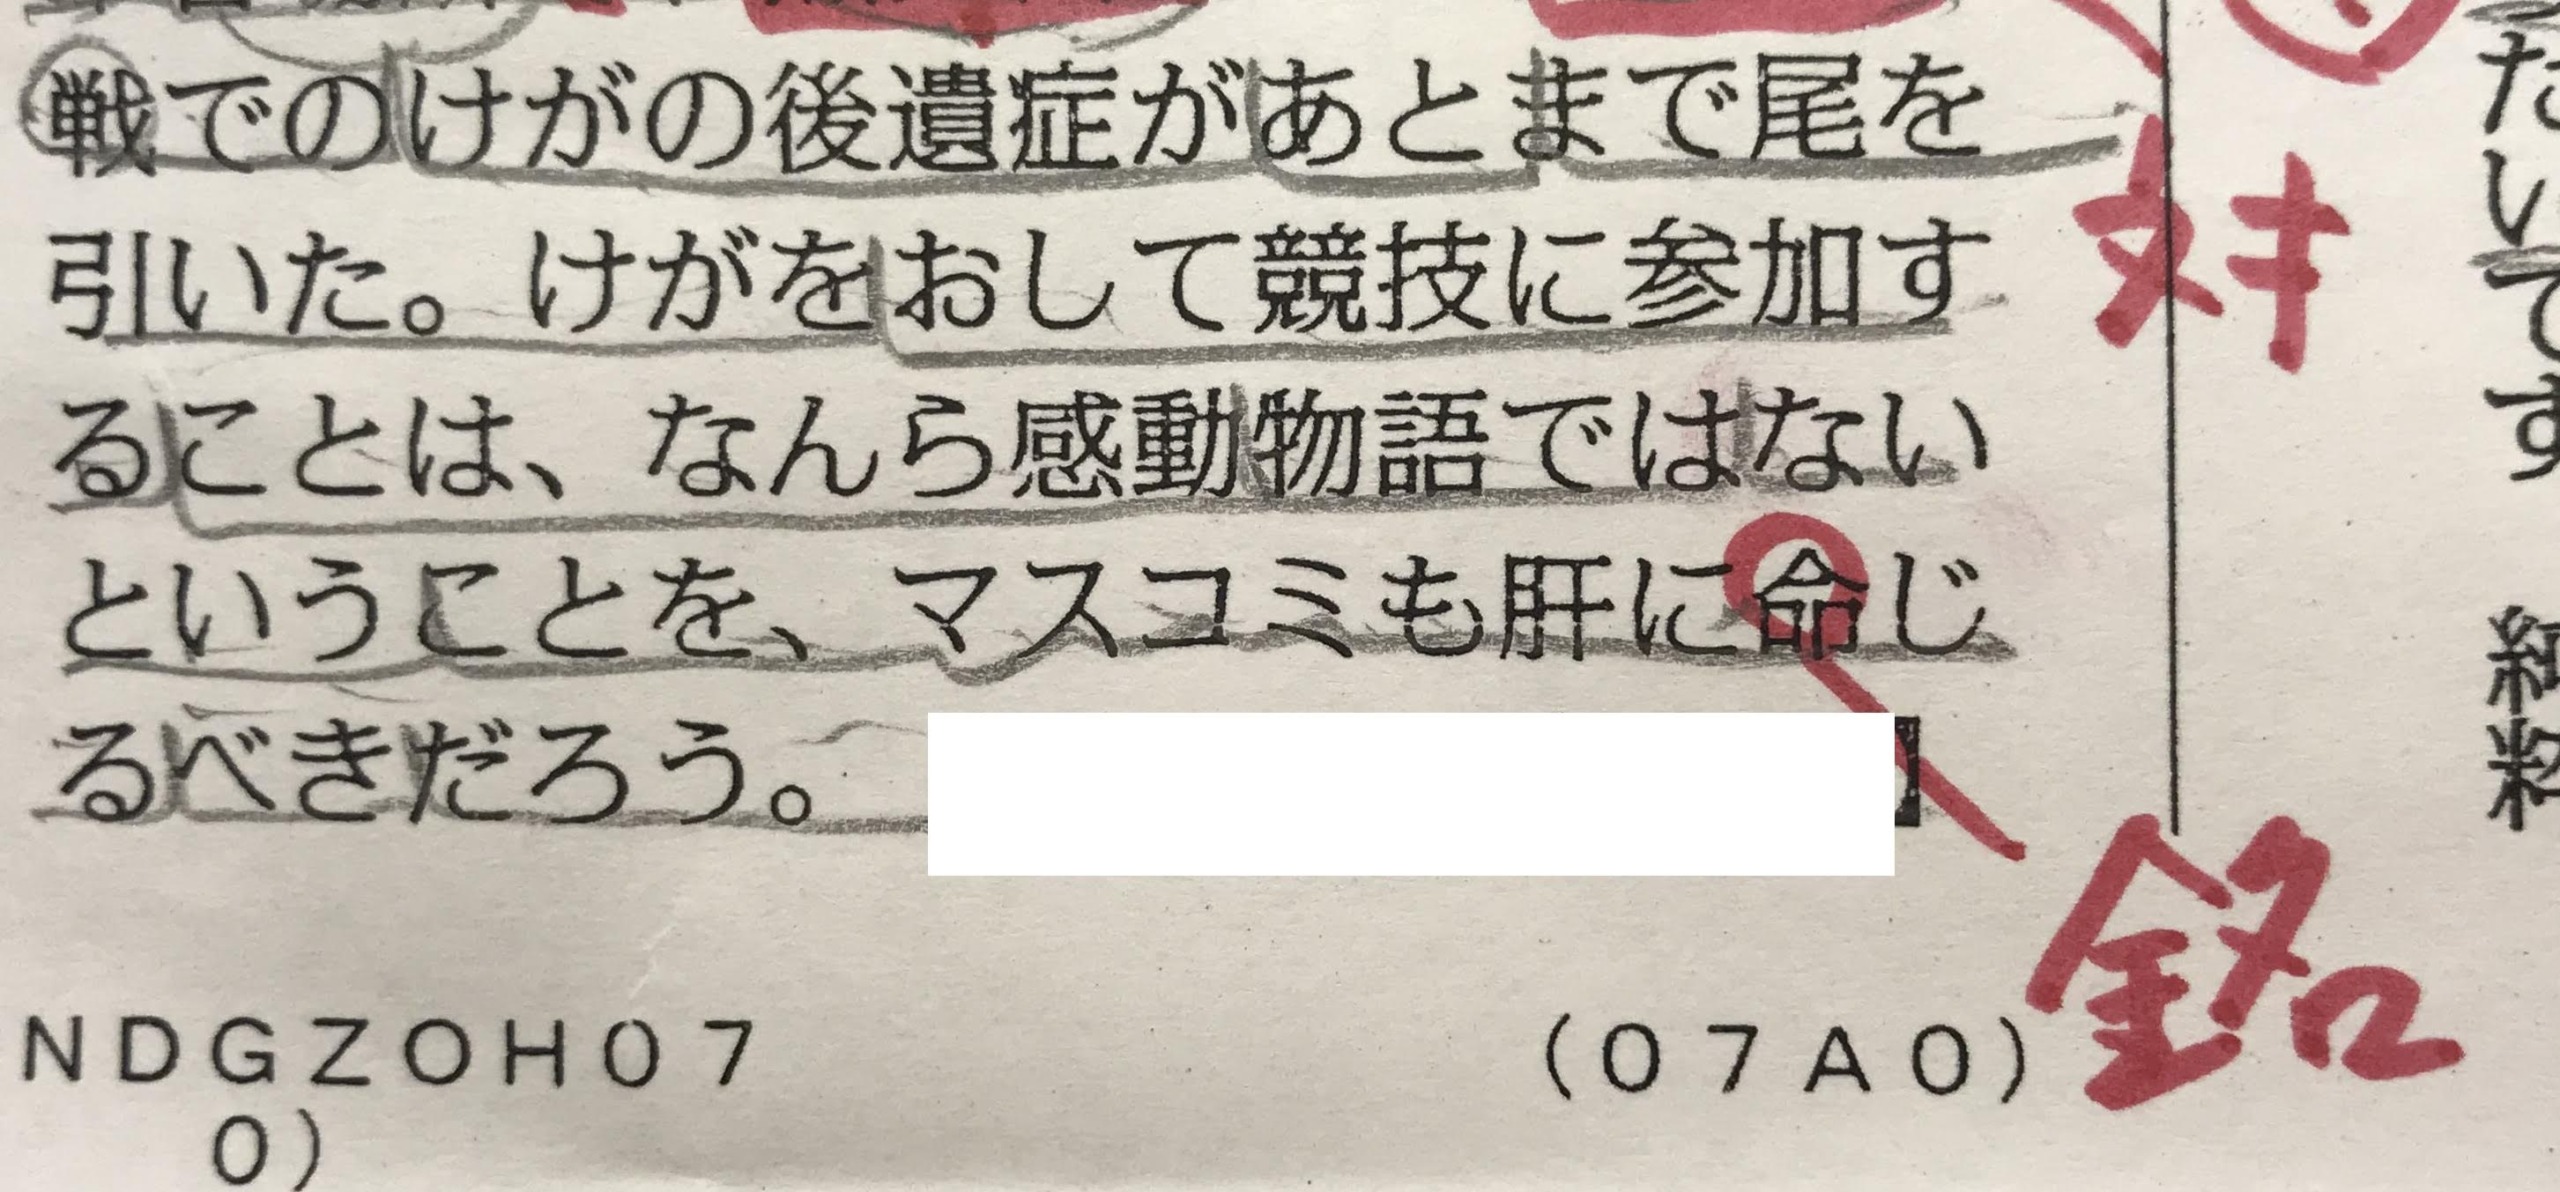 戦でのけがの後遺症があとまで尾を
引いた。けがをおして競技に参加す
ることは、なんら感動物語ではない
ということを、マスコミも肝に命じ
るべきだろう。
】
対
銘
NDGZOH07 (07A0)
0)
たいてす 綿粉